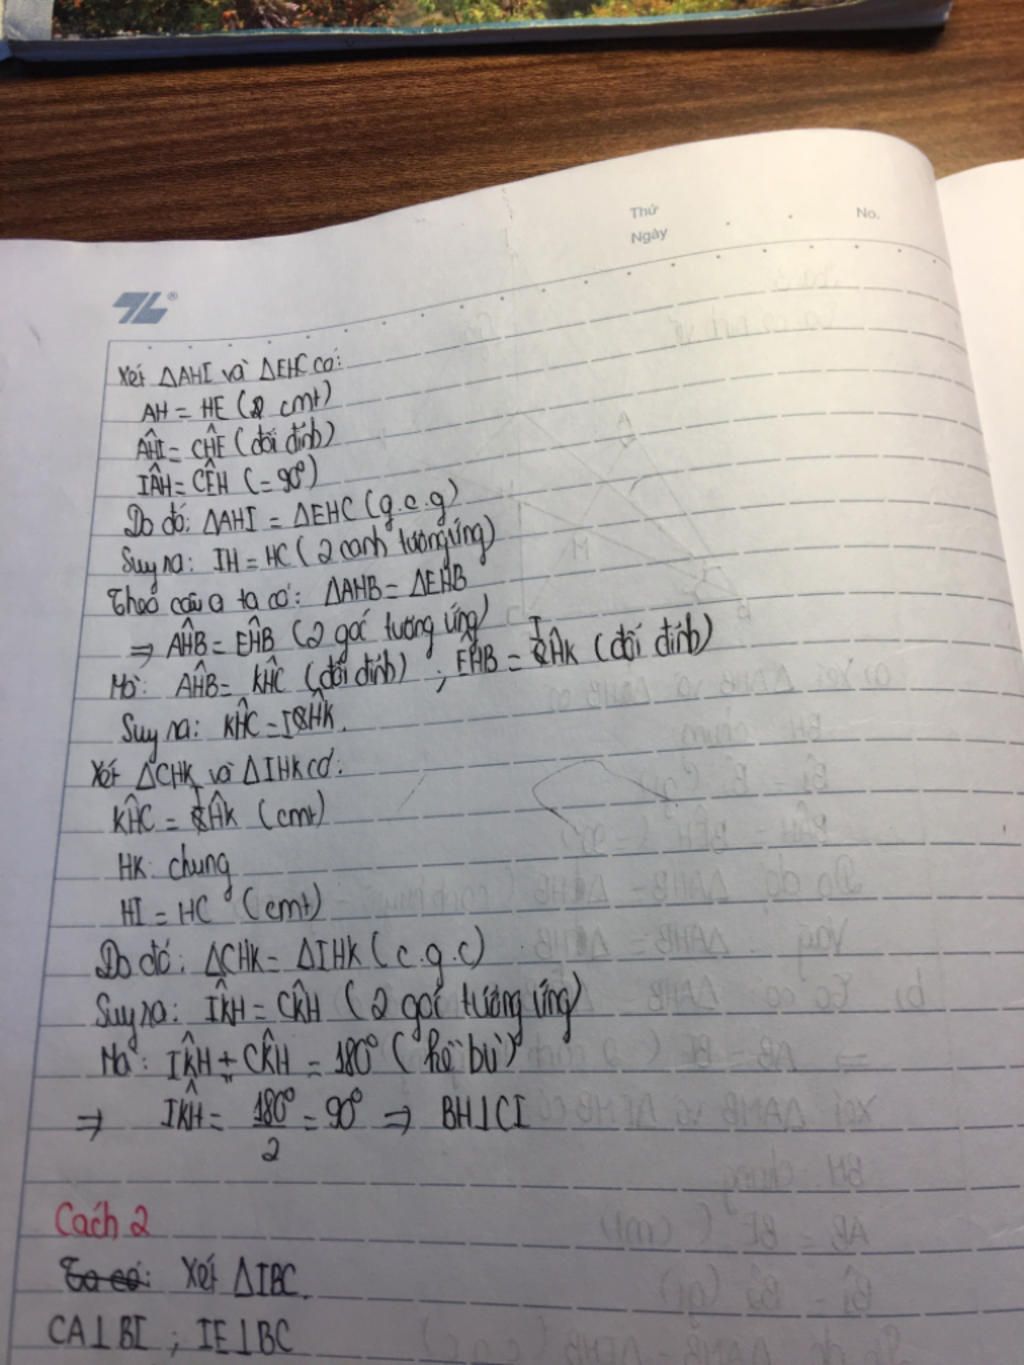 Thứ
No.
Ngày
Xét ΔAHI và ΔEHC có:
AH = HE (cmt)
AĤI = CĤE (đối đỉnh)
IÂH = CÊH (= 90°)
Do đó: ΔAHI = ΔEHC (g.c.g)
Suy ra: IH = HC (2 cạnh tương ứng)
Theo câu a ta có: ΔAHB = ΔEHB
⇒ AĤB = EĤB (2 góc tương ứng)
Mà: AĤB = KĤC (đối đỉnh) ; EĤB = IĤK (đối đỉnh)
Suy ra: KĤC = IĤK.
Xét ΔCHK và ΔIHK có:
KĤC = IĤK (cmt)
HK: chung
HI = HC (cmt)
Do đó: ΔCHK = ΔIHK (c.g.c)
Suy ra: IK̂H = CK̂H (2 góc tương ứng)
Mà: IK̂H + CK̂H = 180° (kề bù)
⇒ IK̂H = 180°/2 = 90° ⇒ BH⊥CI
Cách 2
Ta có: Xét ΔIBC.
CA⊥BI ; IE⊥BC